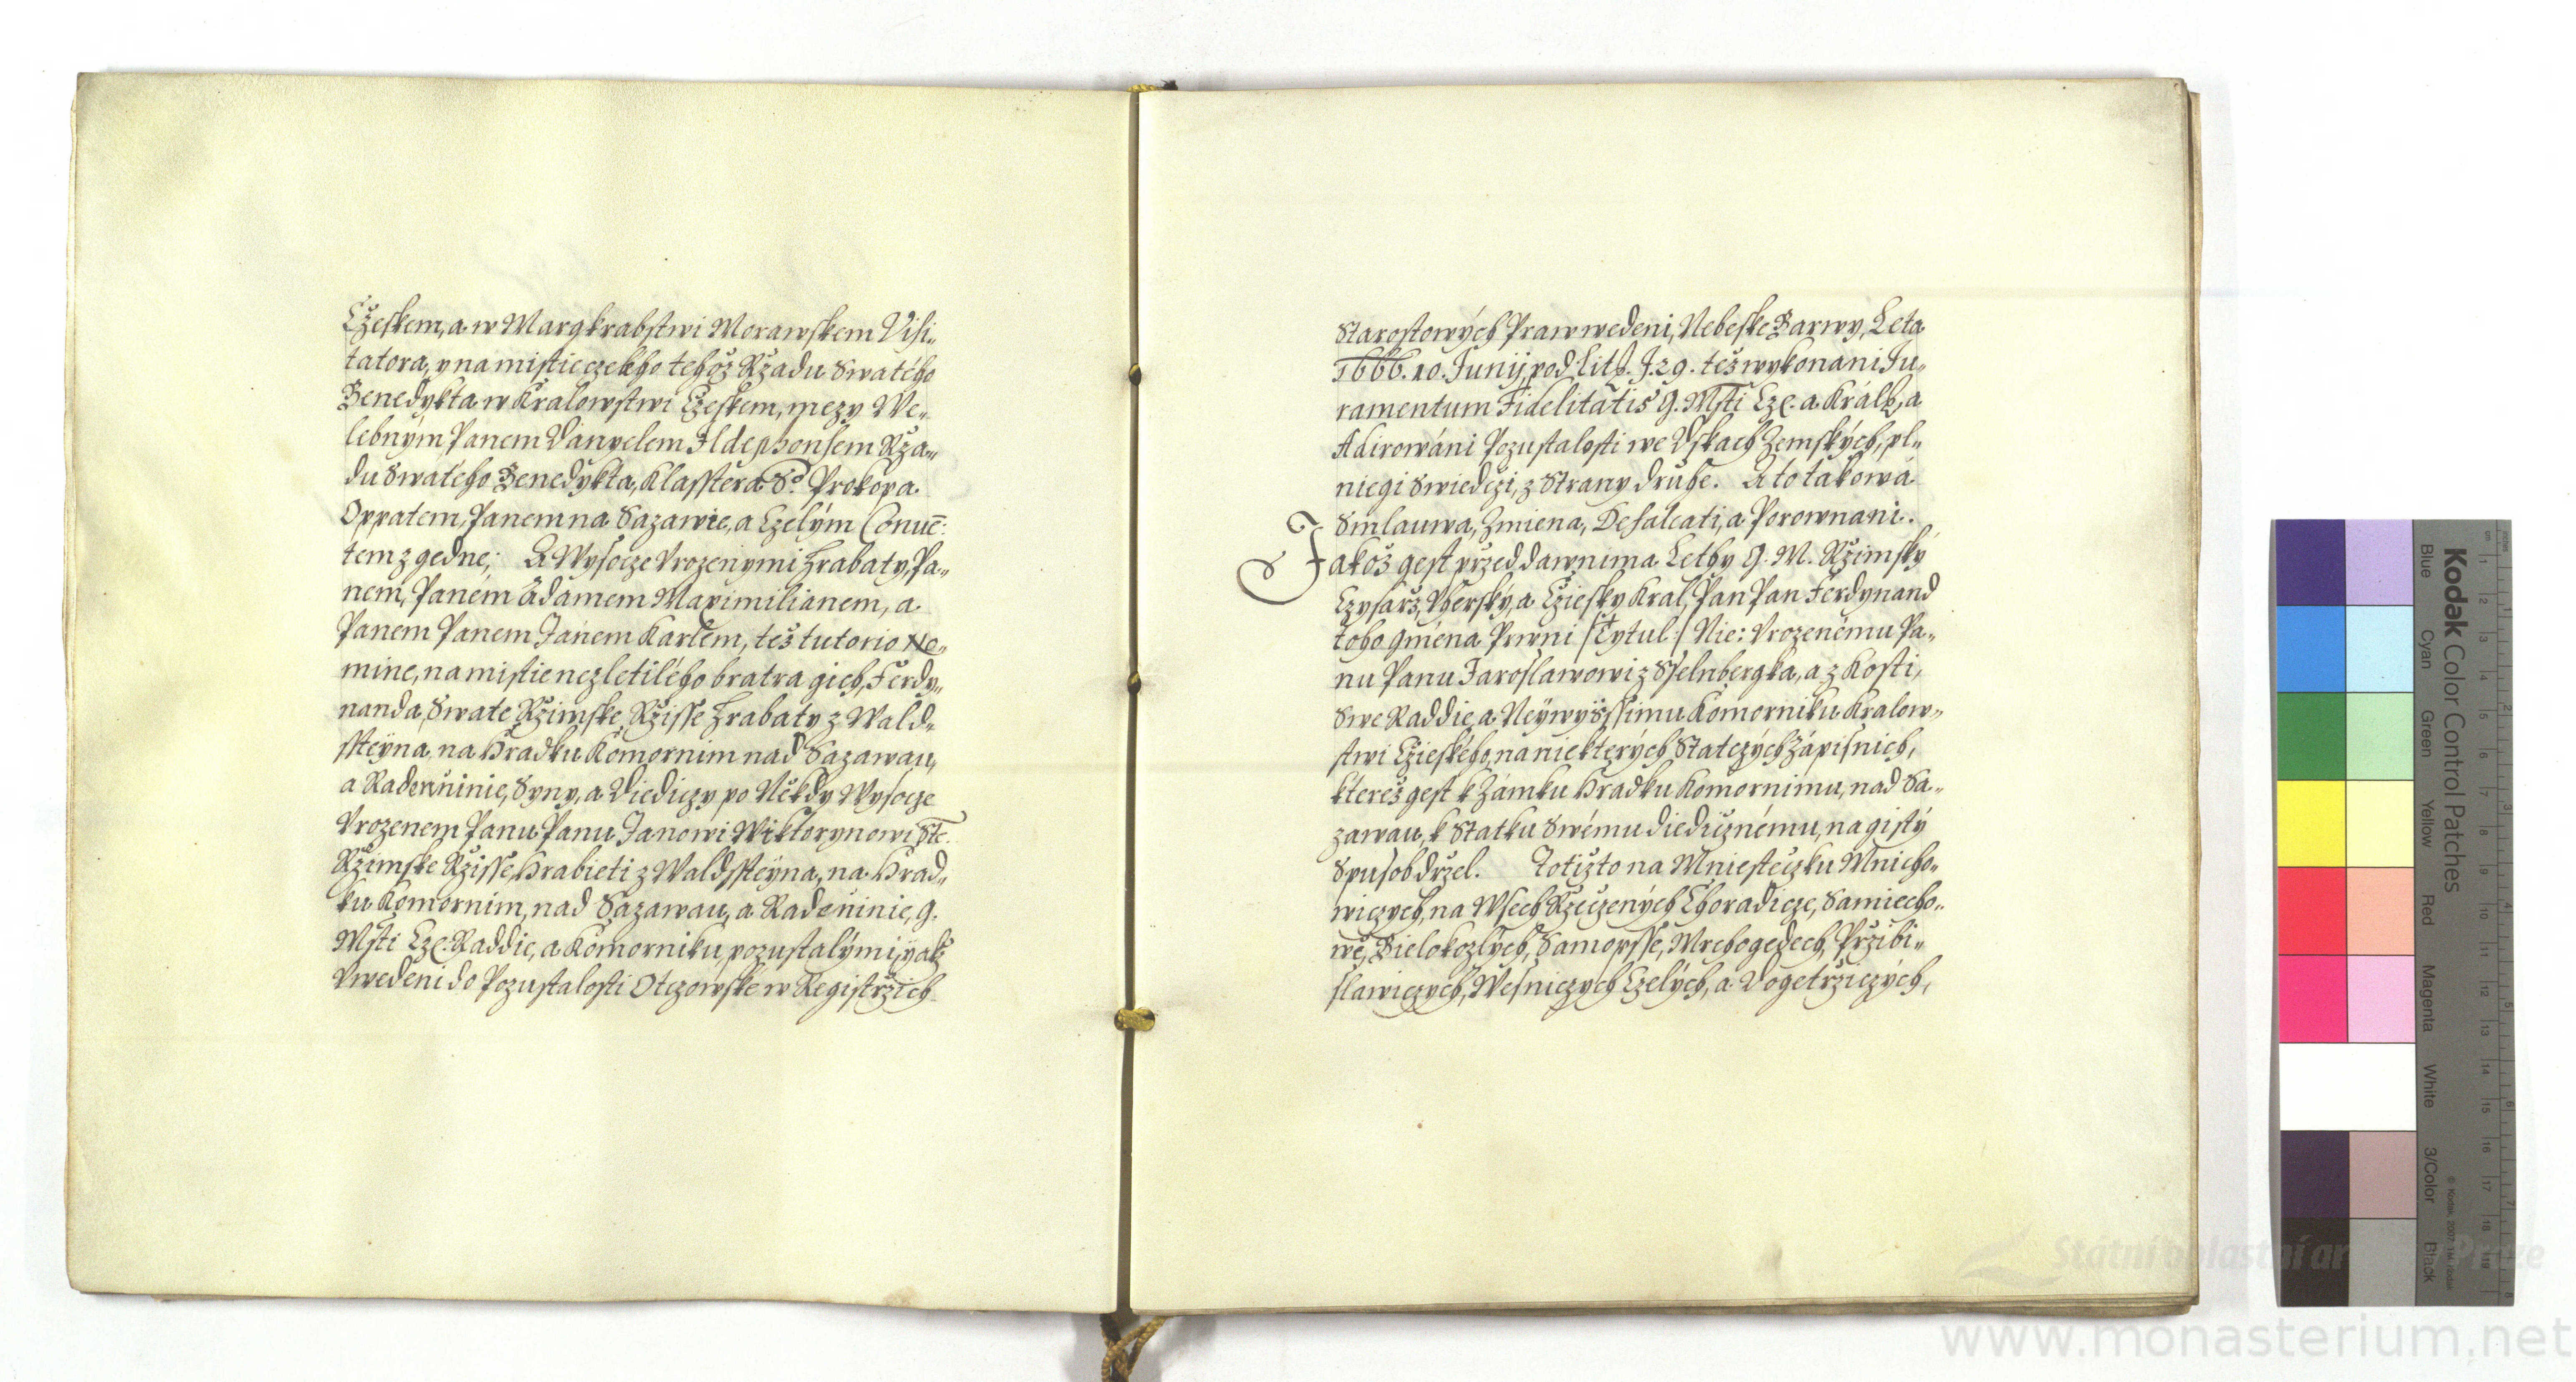 Cžeskem, a w Margkrabstwi Morawskem Visi„
tatora, y na mistie czeleho tehož Ržadu Swatého
Benedykta w Kralowstwi Cžeskem, mezy We„
lebným Panem Danyelem Ildephonsem Ržа„
du Swatého Benedykta, Klasstera S. Prokopa
Oppatem, Panem na Sazawie, a Czelým Conuē:
tem z gedne; A Wysocze Vrozenymi Hrabaty, Pa„
nem, Paném Adamem Maximilianem, a
Panem Panem Janem Karlem, též tutorio No„
mine, na mistie nezletilého bratra gich, Ferdy„
nanda, Swate Ržimske Ržisse Hrabaty z Wald„
ssteÿna na Hradku Komornim nad Sazawau,
a Radeninie, Syny, a Diediczy po Někdy Wysocze
Vrozenem Panu Panu Janowi Wiktorynowi Ste.
Ržimske Ržisse Hrabieti z Waldssteÿna, na Hrad„
ku Komornim, nad Sazawau, a Radeninie, G.
Msti Cze. Raddie, a Komorniku pozustalými, yak
Vwedeni do Pozustalosti Otczowské w Registržich
Starostowých Praw wedeni, Nebeske Barwy, Leta
1666. 10. Junij, pod Lit. J. 29. též wykonani Ju„
ramentum Fidelitatis G. Msti Cze. a Králk, a
Adirowáni Pozustalosti we Dskach Zemských, pl„
niegi Swiedczi, z Strany druhe. A to takowá
Smlauwa, Zmiena, Defalcati, a Porownani.
Jakož gest pržed dawnima Lethy G. M. Ržimský
Czysarž, Vherský, a Cžieský Kral, Pan Pan Ferdynand
toho gména Prwni /: Tytul :/ Nie: Vrozenému Pa„
nu Panu Jaroslawowi z Sselnbergka, a z Kosti,
Swe Raddie, a Neÿwyžssimu Komorniku Kralow„
stwi Cžieského, na niekterých Statczých Zápisnich,
kterež gest k Zámku Hradku Komornimu, nad Sa„
zawau, k Statku Swému diedicznému, na gistý
Spusob držel. Totižto na Mniesteczku Mnicho„
wiczych, na Wsech Ržeczených Choradicze, Samiecho„
wě, Bielokozlých, Samopsse, Mrchogedech, Pržibi„
slawiczych, Wesniczých Czelých, a Dogetržiczých,
www.monasterium.net
Kodak Color Control Patches
Blue Cyan Green Yellow Red Magenta White 3/Color Black